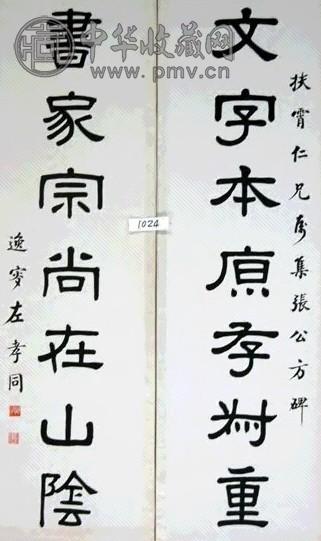 中华收藏网
www.pmv.cn
扶霄仁兄屬集張公方碑
文字本原存叔重
1024
書家宗尚在山陰
逸 左孝同